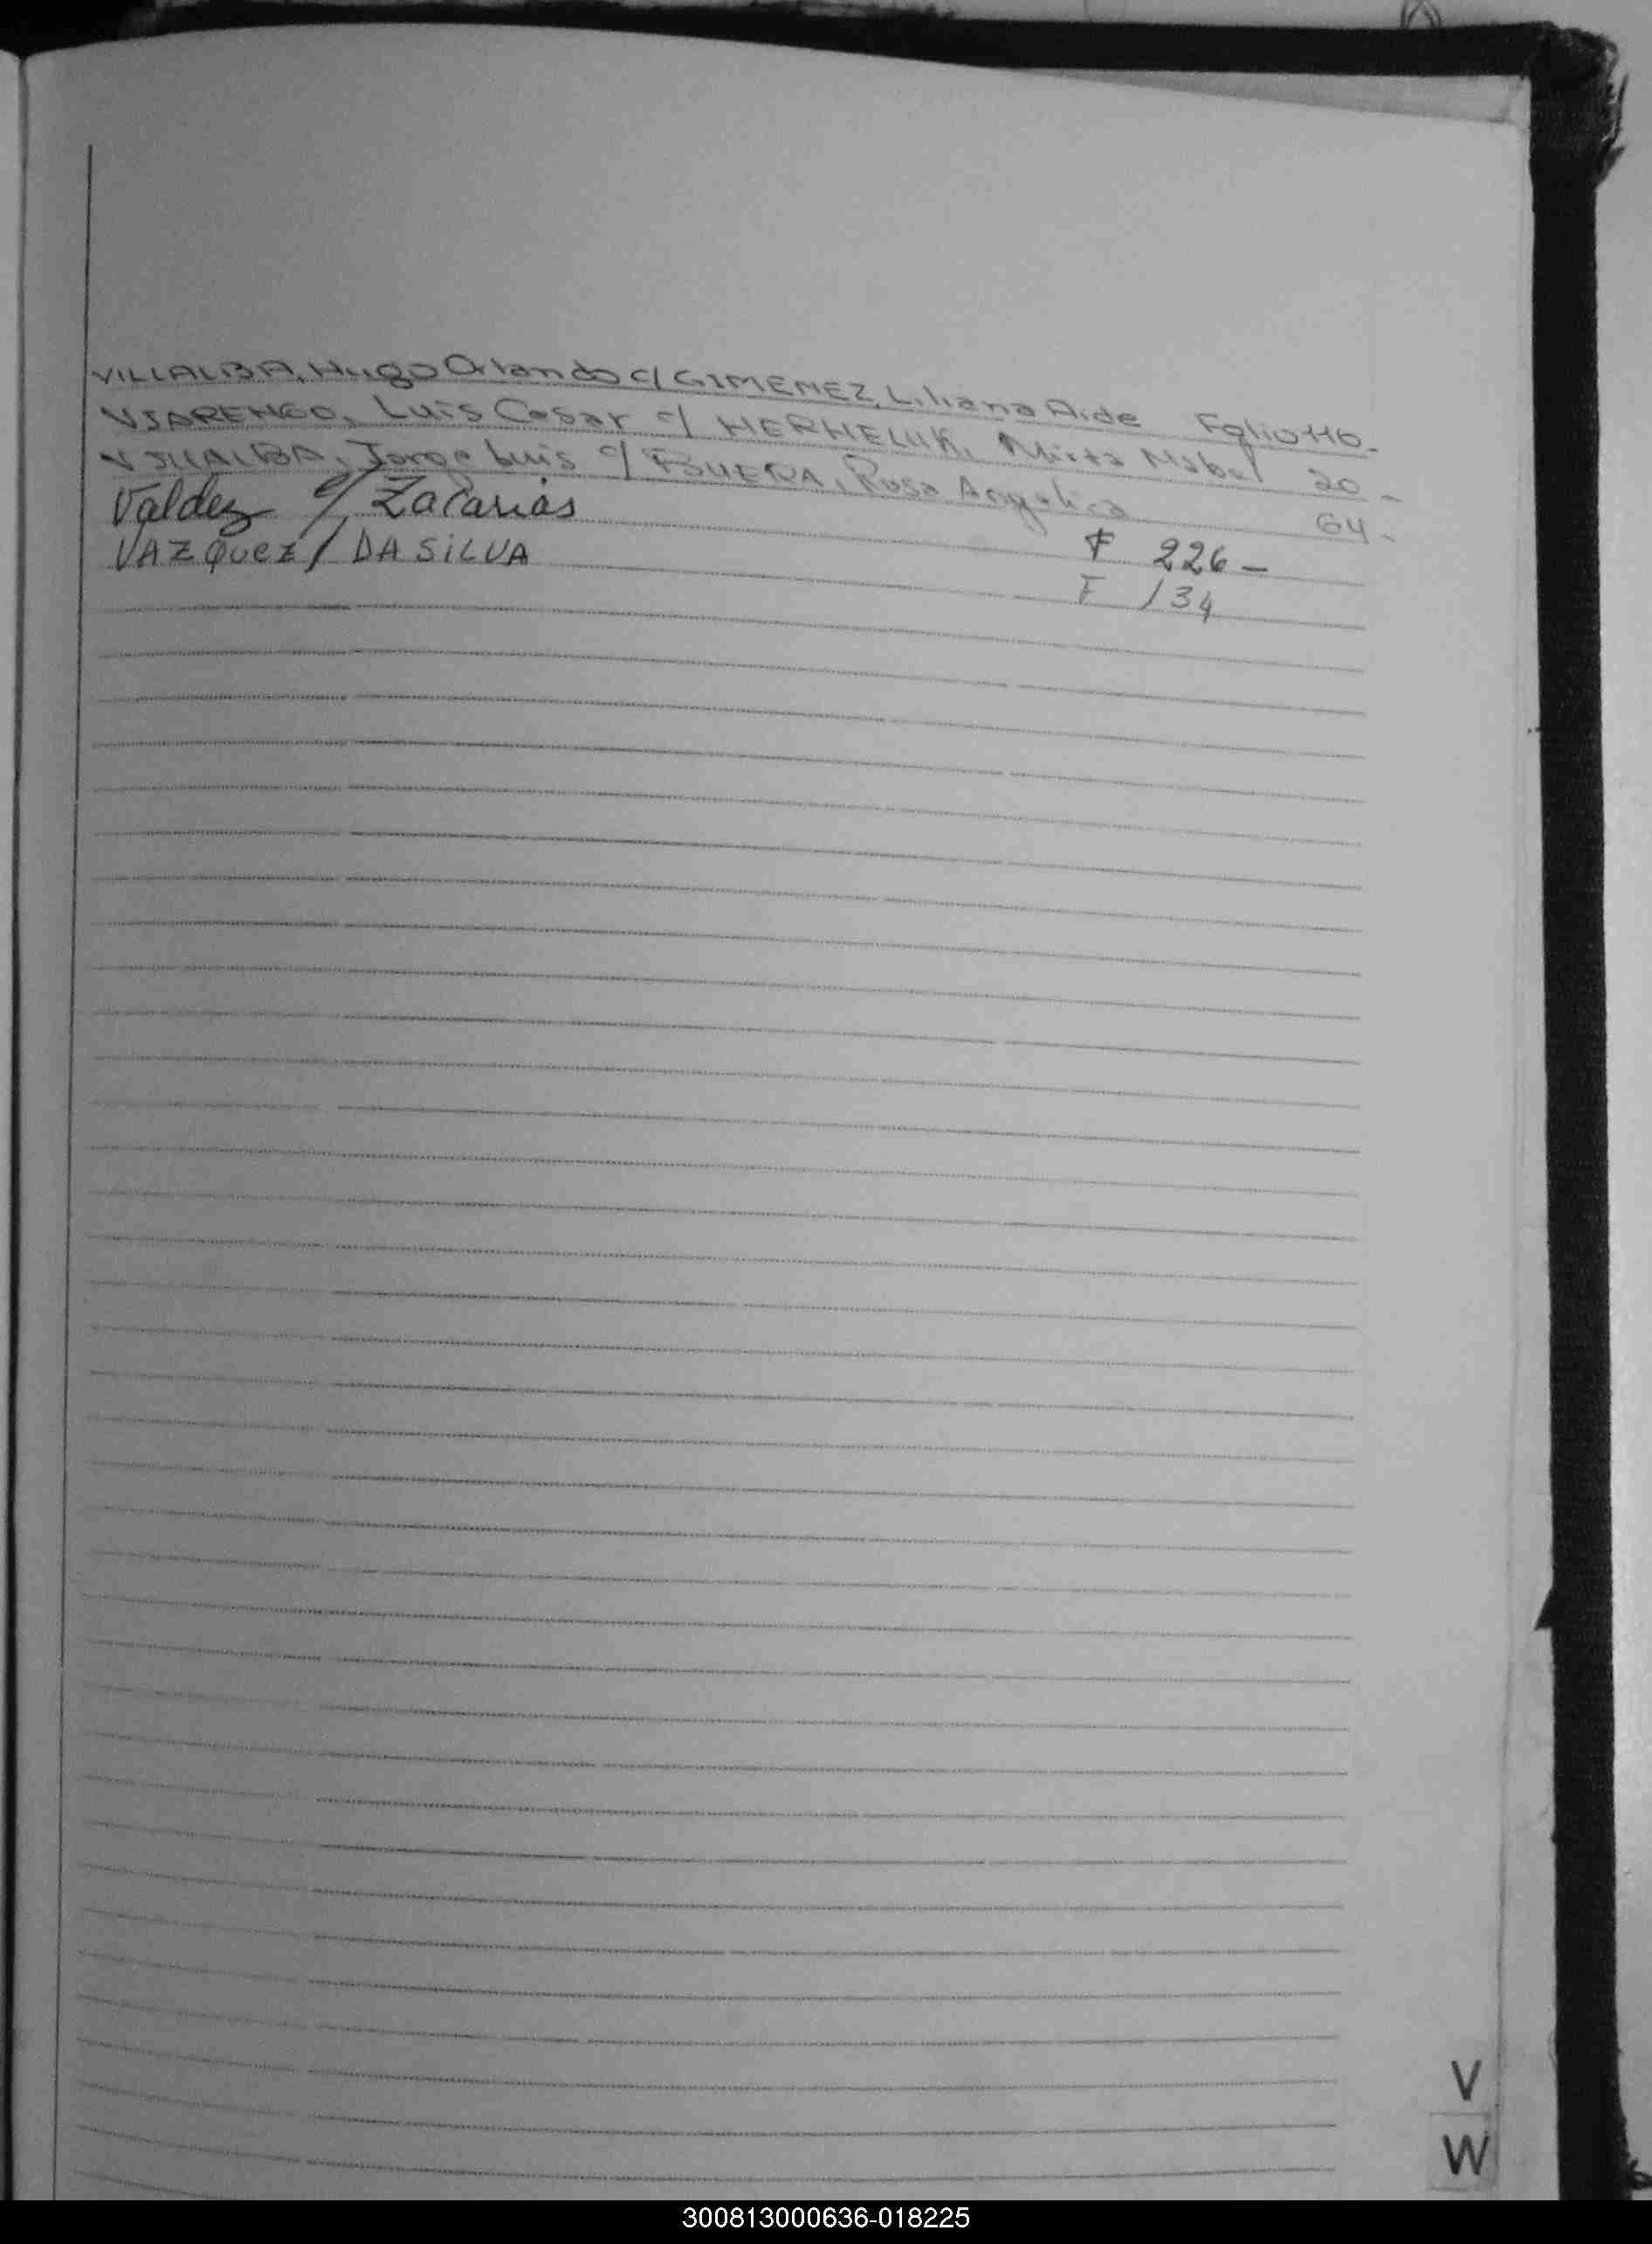 VILLALBA, Hugo Orlando c/ GIMENEZ, Liliana Aide Folio 110.
VIARENGO, Luis Cesar c/ HERHELUK, Mirta Mabel 20 -
VILLALBA, Jorge Luis c/ Rosa Angelica 64 -
Valdez c/ Zacarias F 226 -
VAZQUEZ / DA SILVA F 134
V
W
300813000636-018225